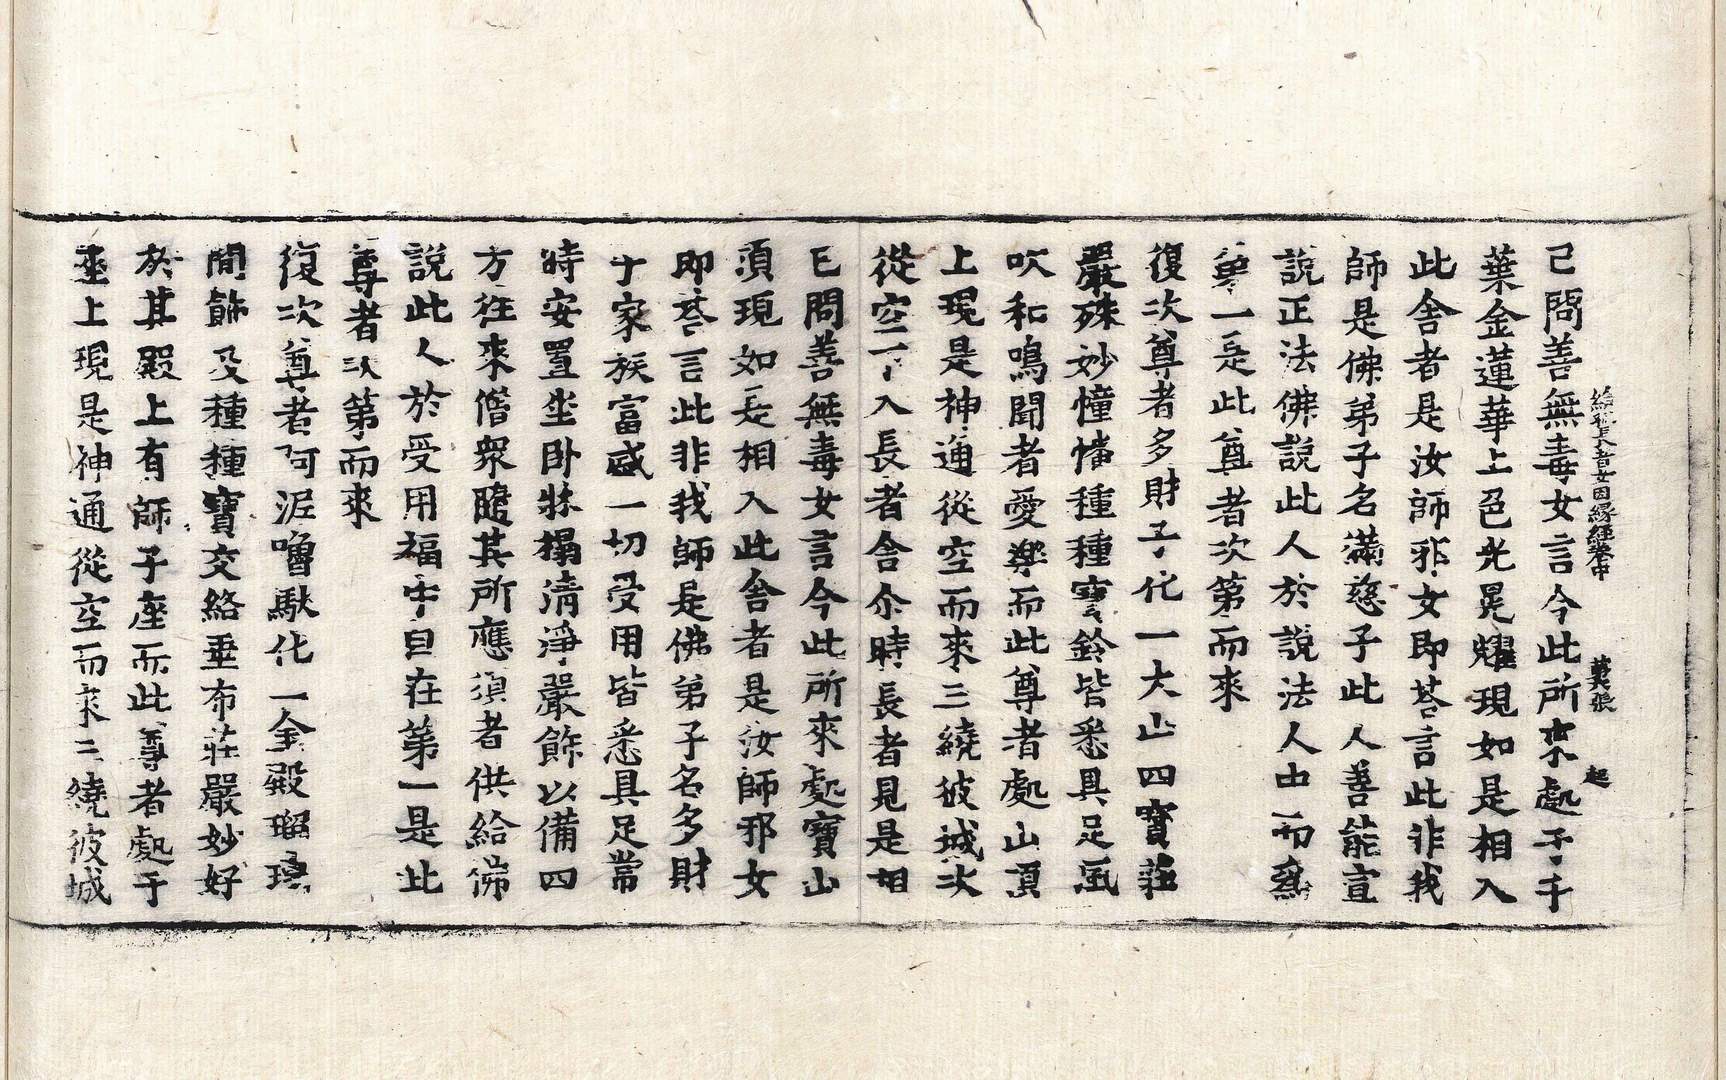 給孤長者女因緣經卷中　第八張　起
已問善無毒女言今此所來處于千
葉金蓮華上色光晃耀現如是相入
此舍者是汝師邪女即荅言此非我
師是佛弟子名滿慈子此人善能宣
說正法佛說此人於說法人中而爲
第一是此尊者次第而來
復次尊者多財子化一大山四寶莊
嚴殊妙憧憣種種寶鈴皆悉具足風
吹和鳴聞者愛樂而此尊者處山頂
上現是神通從空而來三繞彼城次
從空下入長者舍尒時長者見是相
已問善無毒女言今此所來處寶山
須現如是相入此舍者是汝師邪女
即荅言此非我師是佛弟子名多財
子家族富盛一切受用皆悉具足常
時安置坐卧牀榻清淨嚴飾以備四
方往來僧衆隨其所應須者供給佛
說此人於受用福中自在第一是此
尊者次第而來
復次尊者阿泥嚕馱化一金殿瑠璃
間飾及種種寶交絡垂布莊嚴妙好
於其殿上有師子座而此尊者處于
座上現是神通從空而來三繞彼城